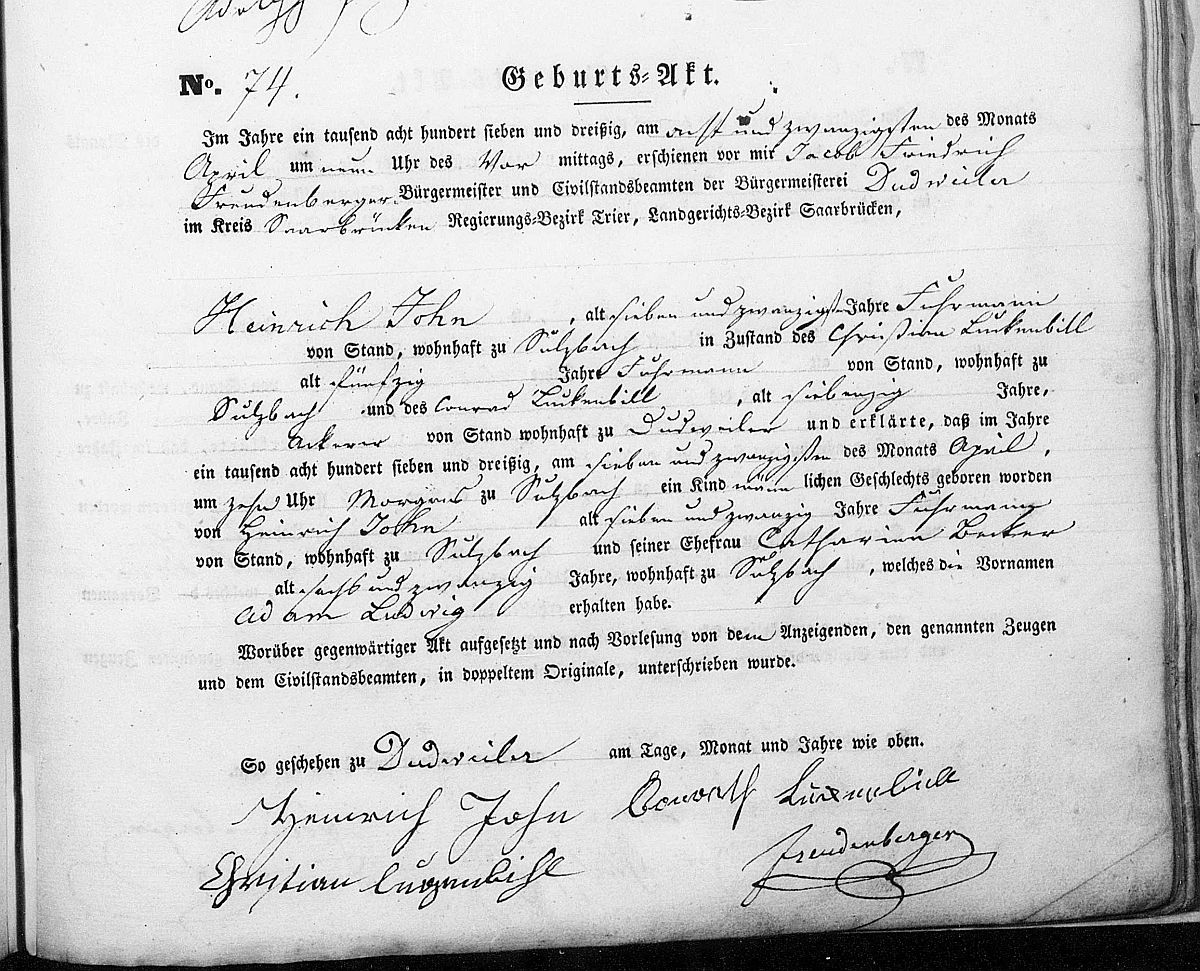 No. 74.
Geburts-Akt.
Im Jahre ein tausend acht hundert sieben und dreißig, am acht und zwanzigsten des Monats
April um neun Uhr des Vor mittags, erschienen vor mir Jacob Friedrich
Freudenberger Bürgermeister und Civilstandsbeamten der Bürgermeisterei Dudweiler
im Kreis Saarbrücken Regierungs-Bezirk Trier, Landgerichts-Bezirk Saarbrücken,
Heinrich John, alt sieben und zwanzigst Jahre Fuhrmann
von Stand, wohnhaft zu Sulzbach in Zustand des Christian Luckenbill
alt fünfzig Jahre Fuhrmann von Stand, wohnhaft zu
Sulzbach und des Conrad Luckenbill, alt siebenzig Jahre,
Ackerer von Stand wohnhaft zu Dudweiler und erklärte, daß im Jahre
ein tausend acht hundert sieben und dreißig, am sieben und zwanzigsten des Monats April,
um zehn Uhr Morgens zu Sulzbach ein Kind männ lichen Geschlechts geboren worden
von Heinrich John alt sieben und zwanzig Jahre Fuhrmann
von Stand, wohnhaft zu Sulzbach und seiner Ehefrau Catharina Becker
alt sechs und zwanzig Jahre, wohnhaft zu Sulzbach, welches die Vornamen
Adam Ludwig erhalten habe.
Worüber gegenwärtiger Akt aufgesetzt und nach Vorlesung von dem Anzeigenden, den genannten Zeugen
und dem Civilstandsbeamten, in doppeltem Originale, unterschrieben wurde.
So geschehen zu Dudweiler am Tage, Monat und Jahre wie oben.
Heinrich John Conrath Luxenbüll
Christian Luxenbihl Freudenberger